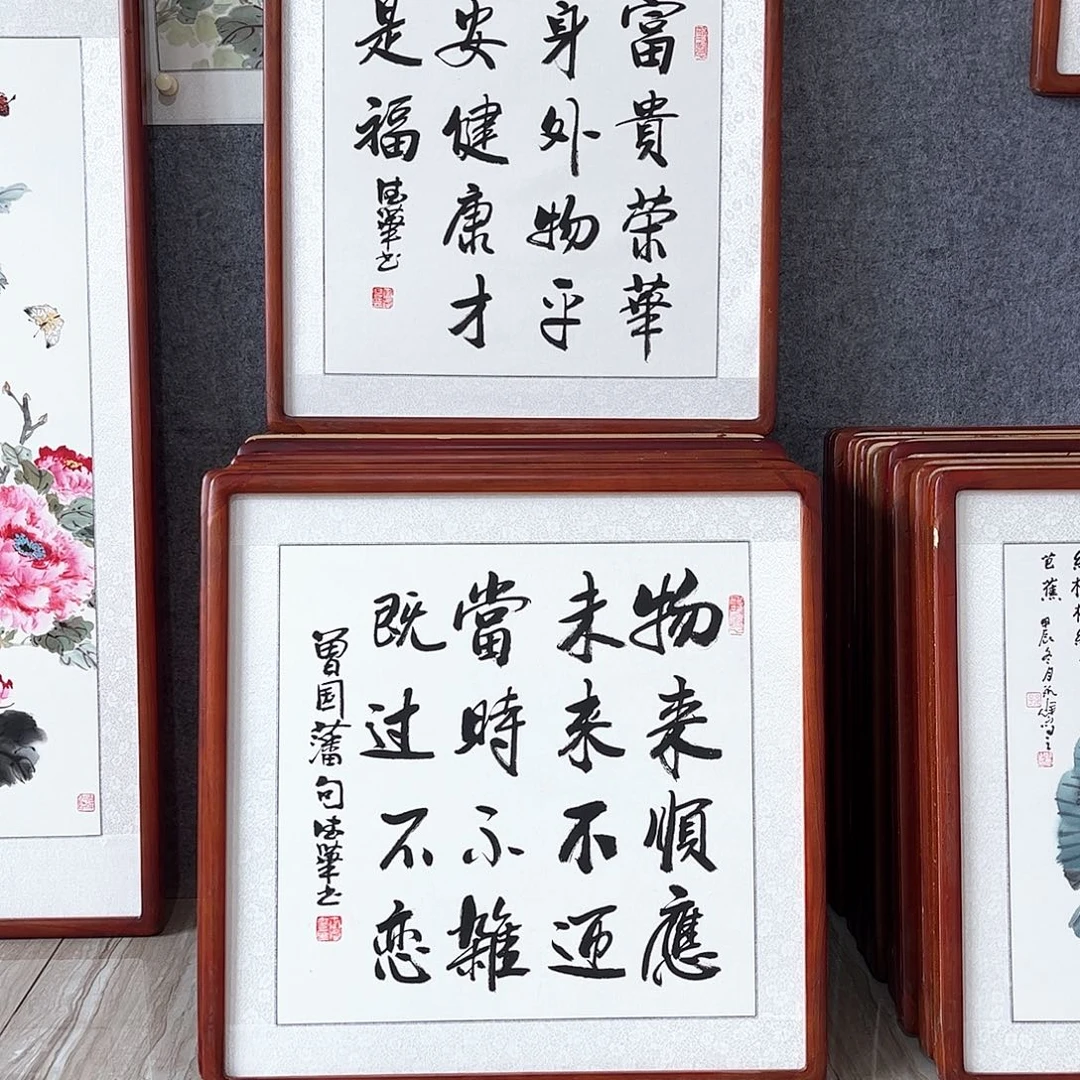 富貴荣華
身外物平
安健康才
是福
德華书
物来順應
未来不迎
當時不雜
既过不恋
曾国藩句德華书
芭蕉 甲辰冬月